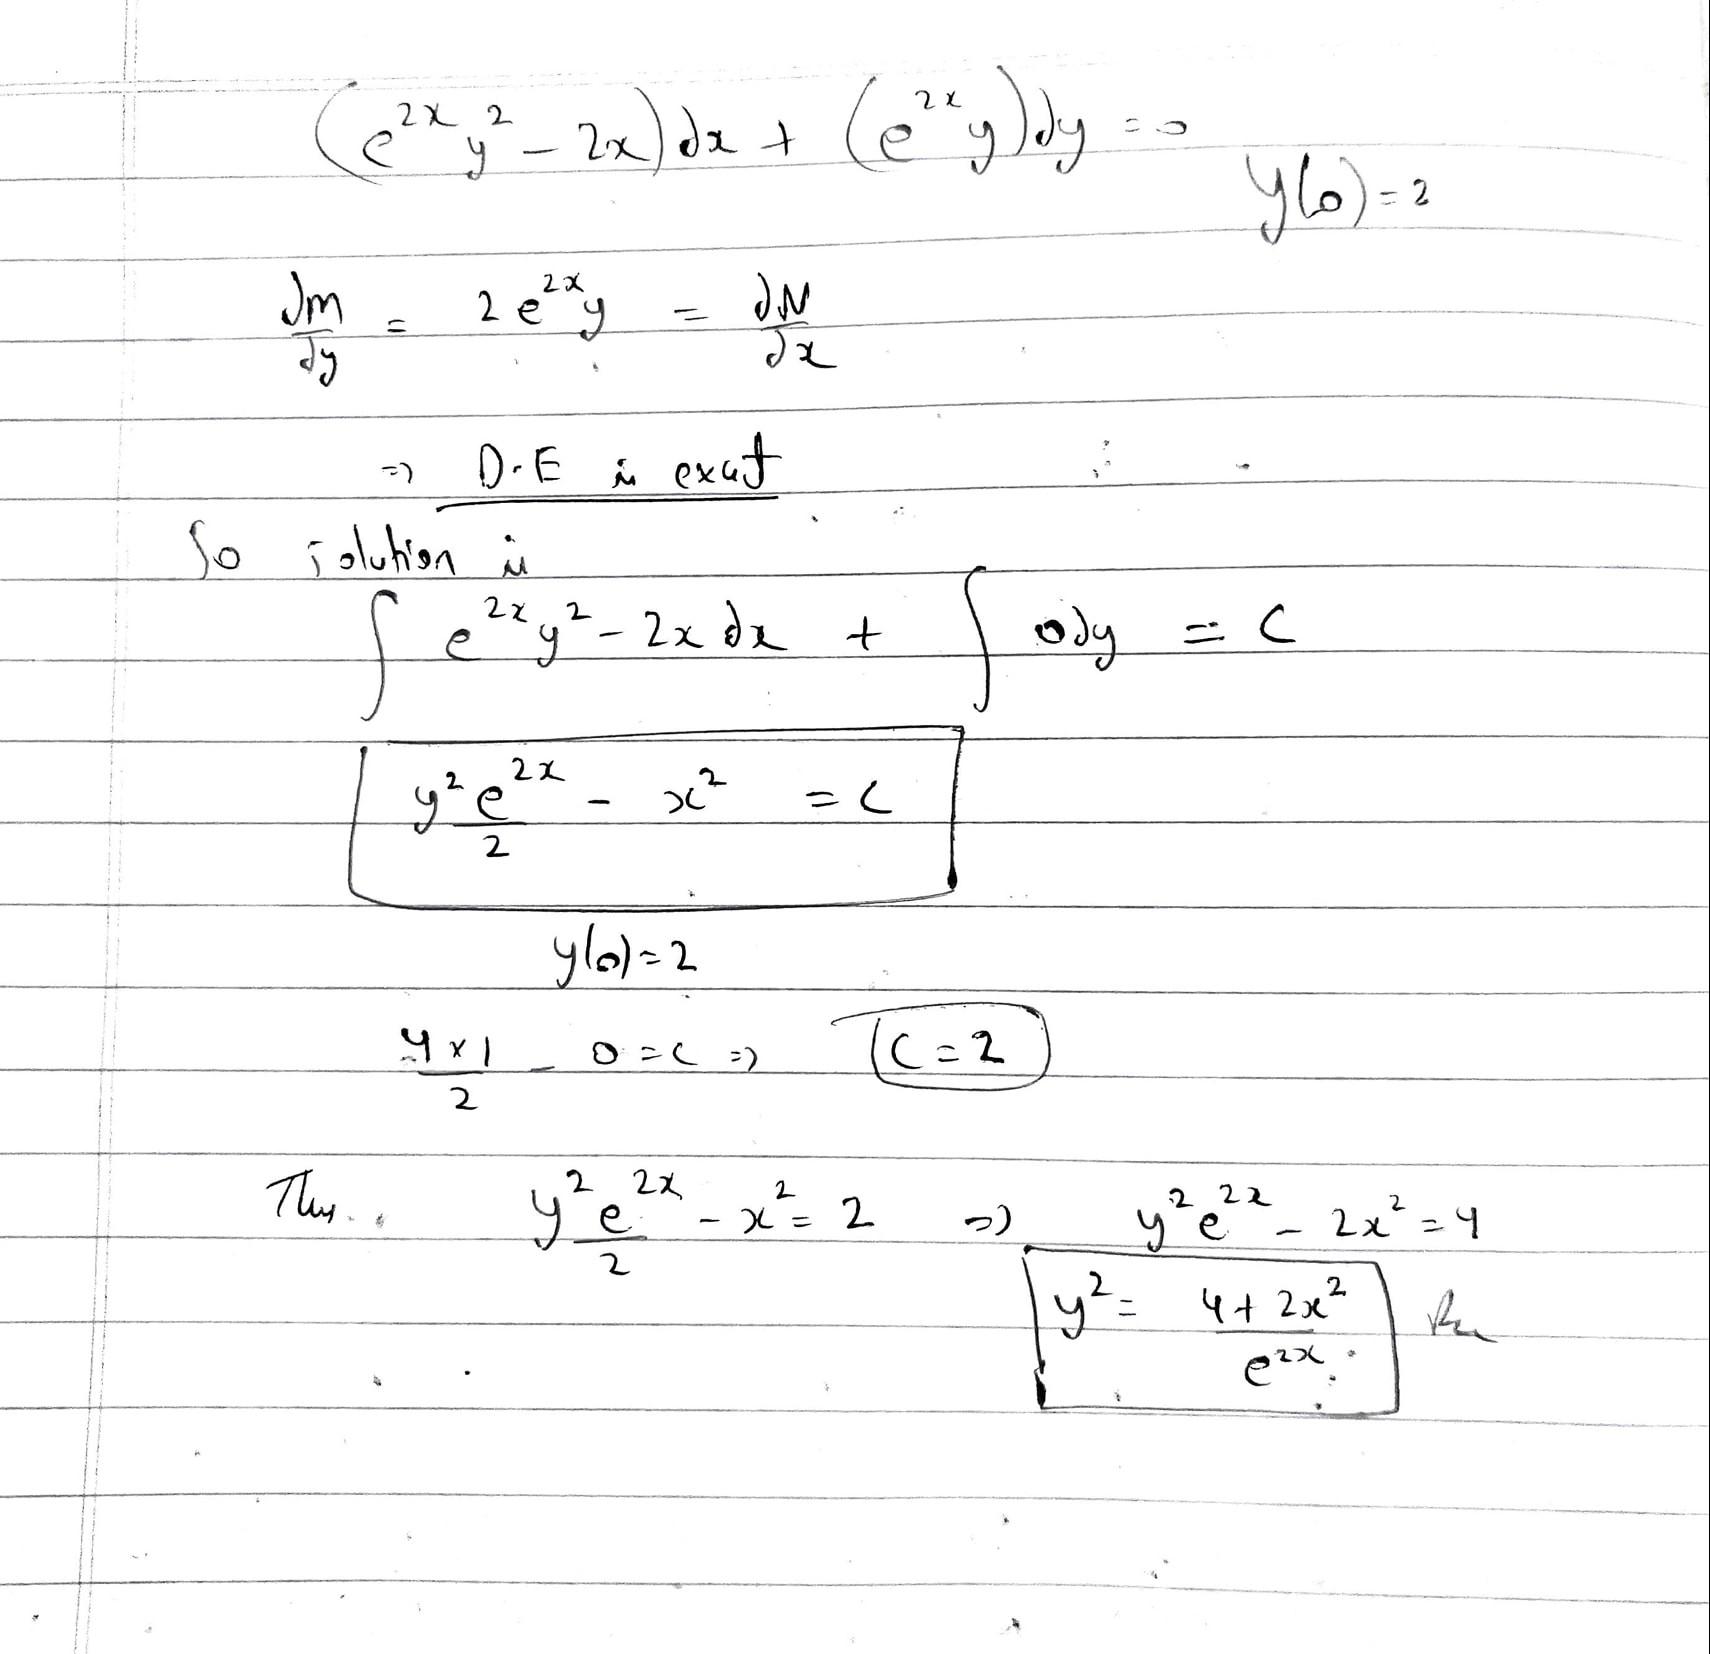 (e^{2x} y^2 - 2x) dx + (e^{2x} y) dy = 0
y(0) = 2
∂M/∂y = 2e^{2x} y = ∂N/∂x
⇒ D.E is exact
So solution is
∫ e^{2x} y^2 - 2x dx + ∫ 0 dy = C
y^2 e^{2x}/2 - x^2 = C
y(0) = 2
4×1/2 - 0 = C ⇒ C = 2
Thus.. y^2 e^{2x}/2 - x^2 = 2 ⇒ y^2 e^{2x} - 2x^2 = 4
y^2 = 4 + 2x^2/e^{2x}